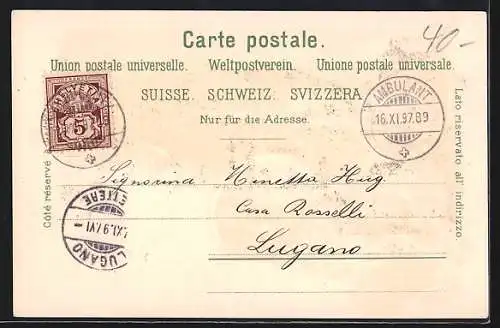 Carte postale.
40-
Union postale universelle. Weltpostverein. Unione postale universale.
SUISSE. SCHWEIZ. SVIZZERA.
Nur für die Adresse.
Côté réservé
Lato riservato all' indirizzo.
5
AMBULANT
16.XI.97.89
Signorina Ninetta Hug
Casa Rosselli
Lugano
LUGANO
XI.97.VI-
LETTERE